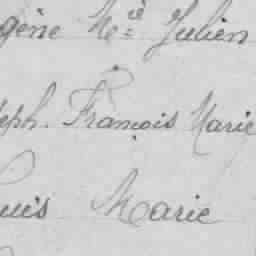 gène M^ie Julien
seph. François Marie
ouis Marie